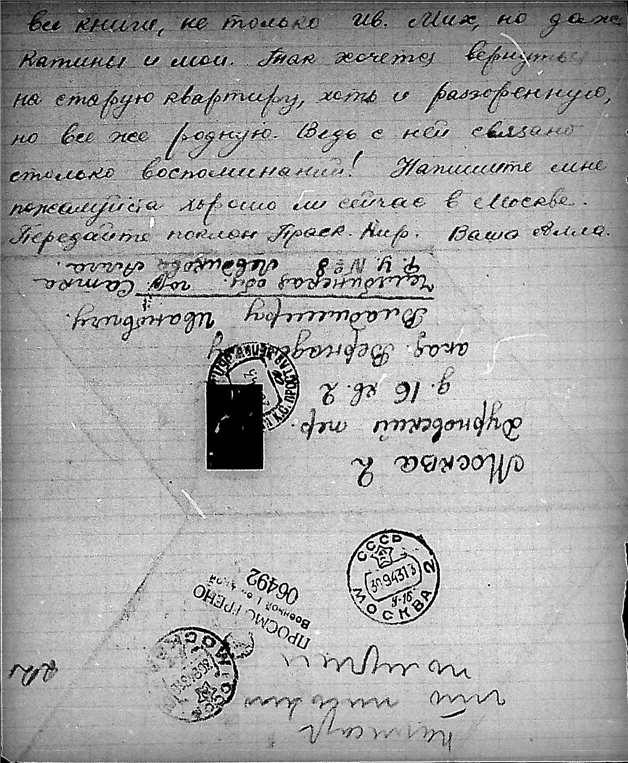 все книги, не только Ив. Мих, но даже
Катины и мои. Так хочется вернуться
на старую квартиру, хоть и разоренную,
но все же родную. Ведь с ней связано
столько воспоминаний! Напишите мне
пожалуйста хорошо ли сейчас в Москве.
Передайте поклон Праск. Кир. Ваша Алла.
Москва 2
Дурновский пер.
д. 16 кв. 2
акад. Вернадскому
Владимиру Ивановичу.
Челябинская обл. гор Сатка
Ф.У. № 8 Алла.
СССР
30 9 43 13
МОСКВА 2
ПРОСМОТРЕНО
Военной Цензурой
06492
МОСКВА
что письмо
получил